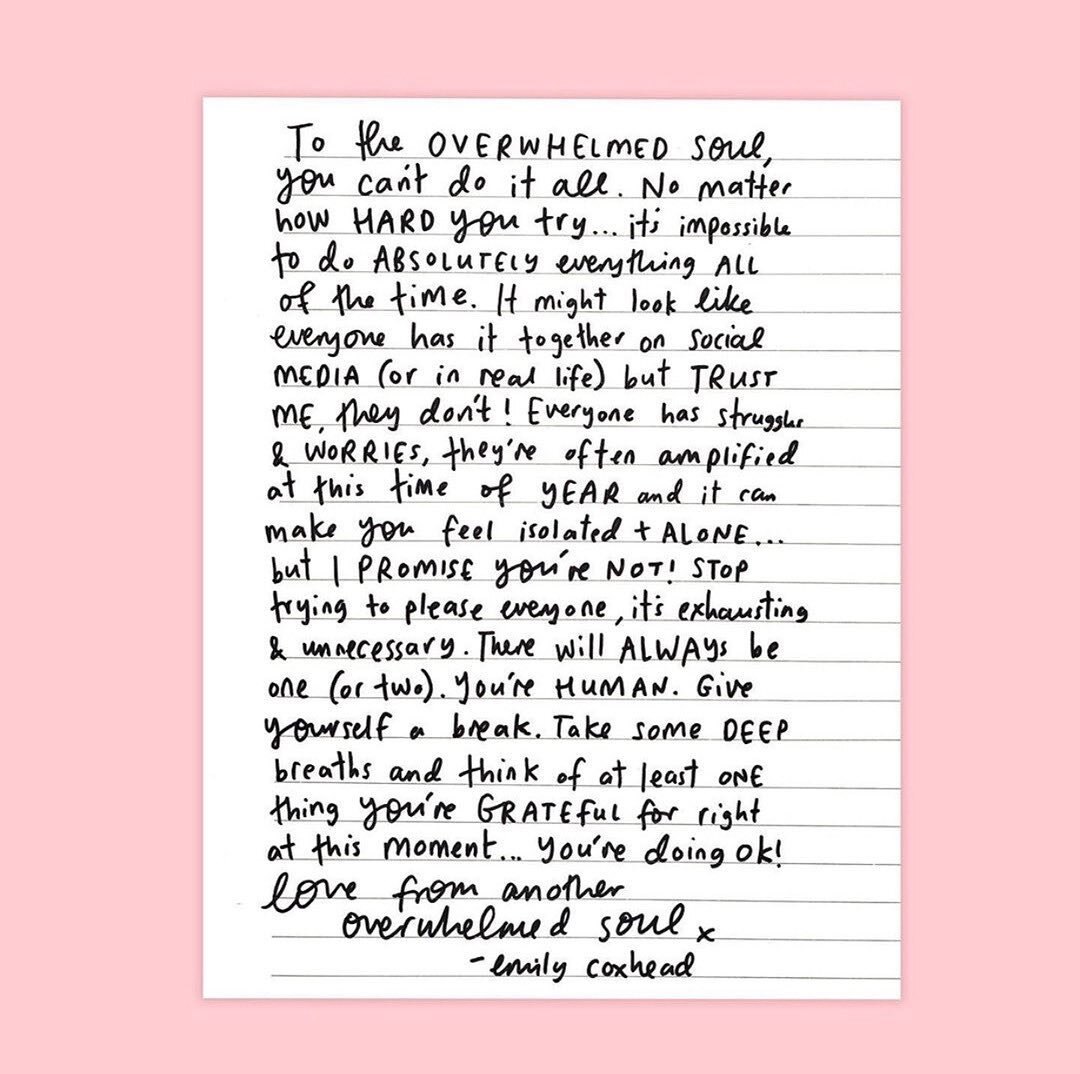 To the OVERWHELMED SOUL,
you can't do it all. No matter
how HARD you try... it's impossible
to do ABSOLUTELY everything ALL
of the time. It might look like
everyone has it together on social
MEDIA (or in real life) but TRUST
ME, they don't! Everyone has struggles
& WORRIES, they're often amplified
at this time of YEAR and it can
make you feel isolated + ALONE...
but I PROMISE you're NOT! STOP
trying to please everyone, it's exhausting
& unnecessary. There will ALWAYS be
one (or two). You're HUMAN. Give
yourself a break. Take some DEEP
breaths and think of at least ONE
thing you're GRATEFUL for right
at this moment... you're doing ok!
love from another
overwhelmed soul x
-emily coxhead